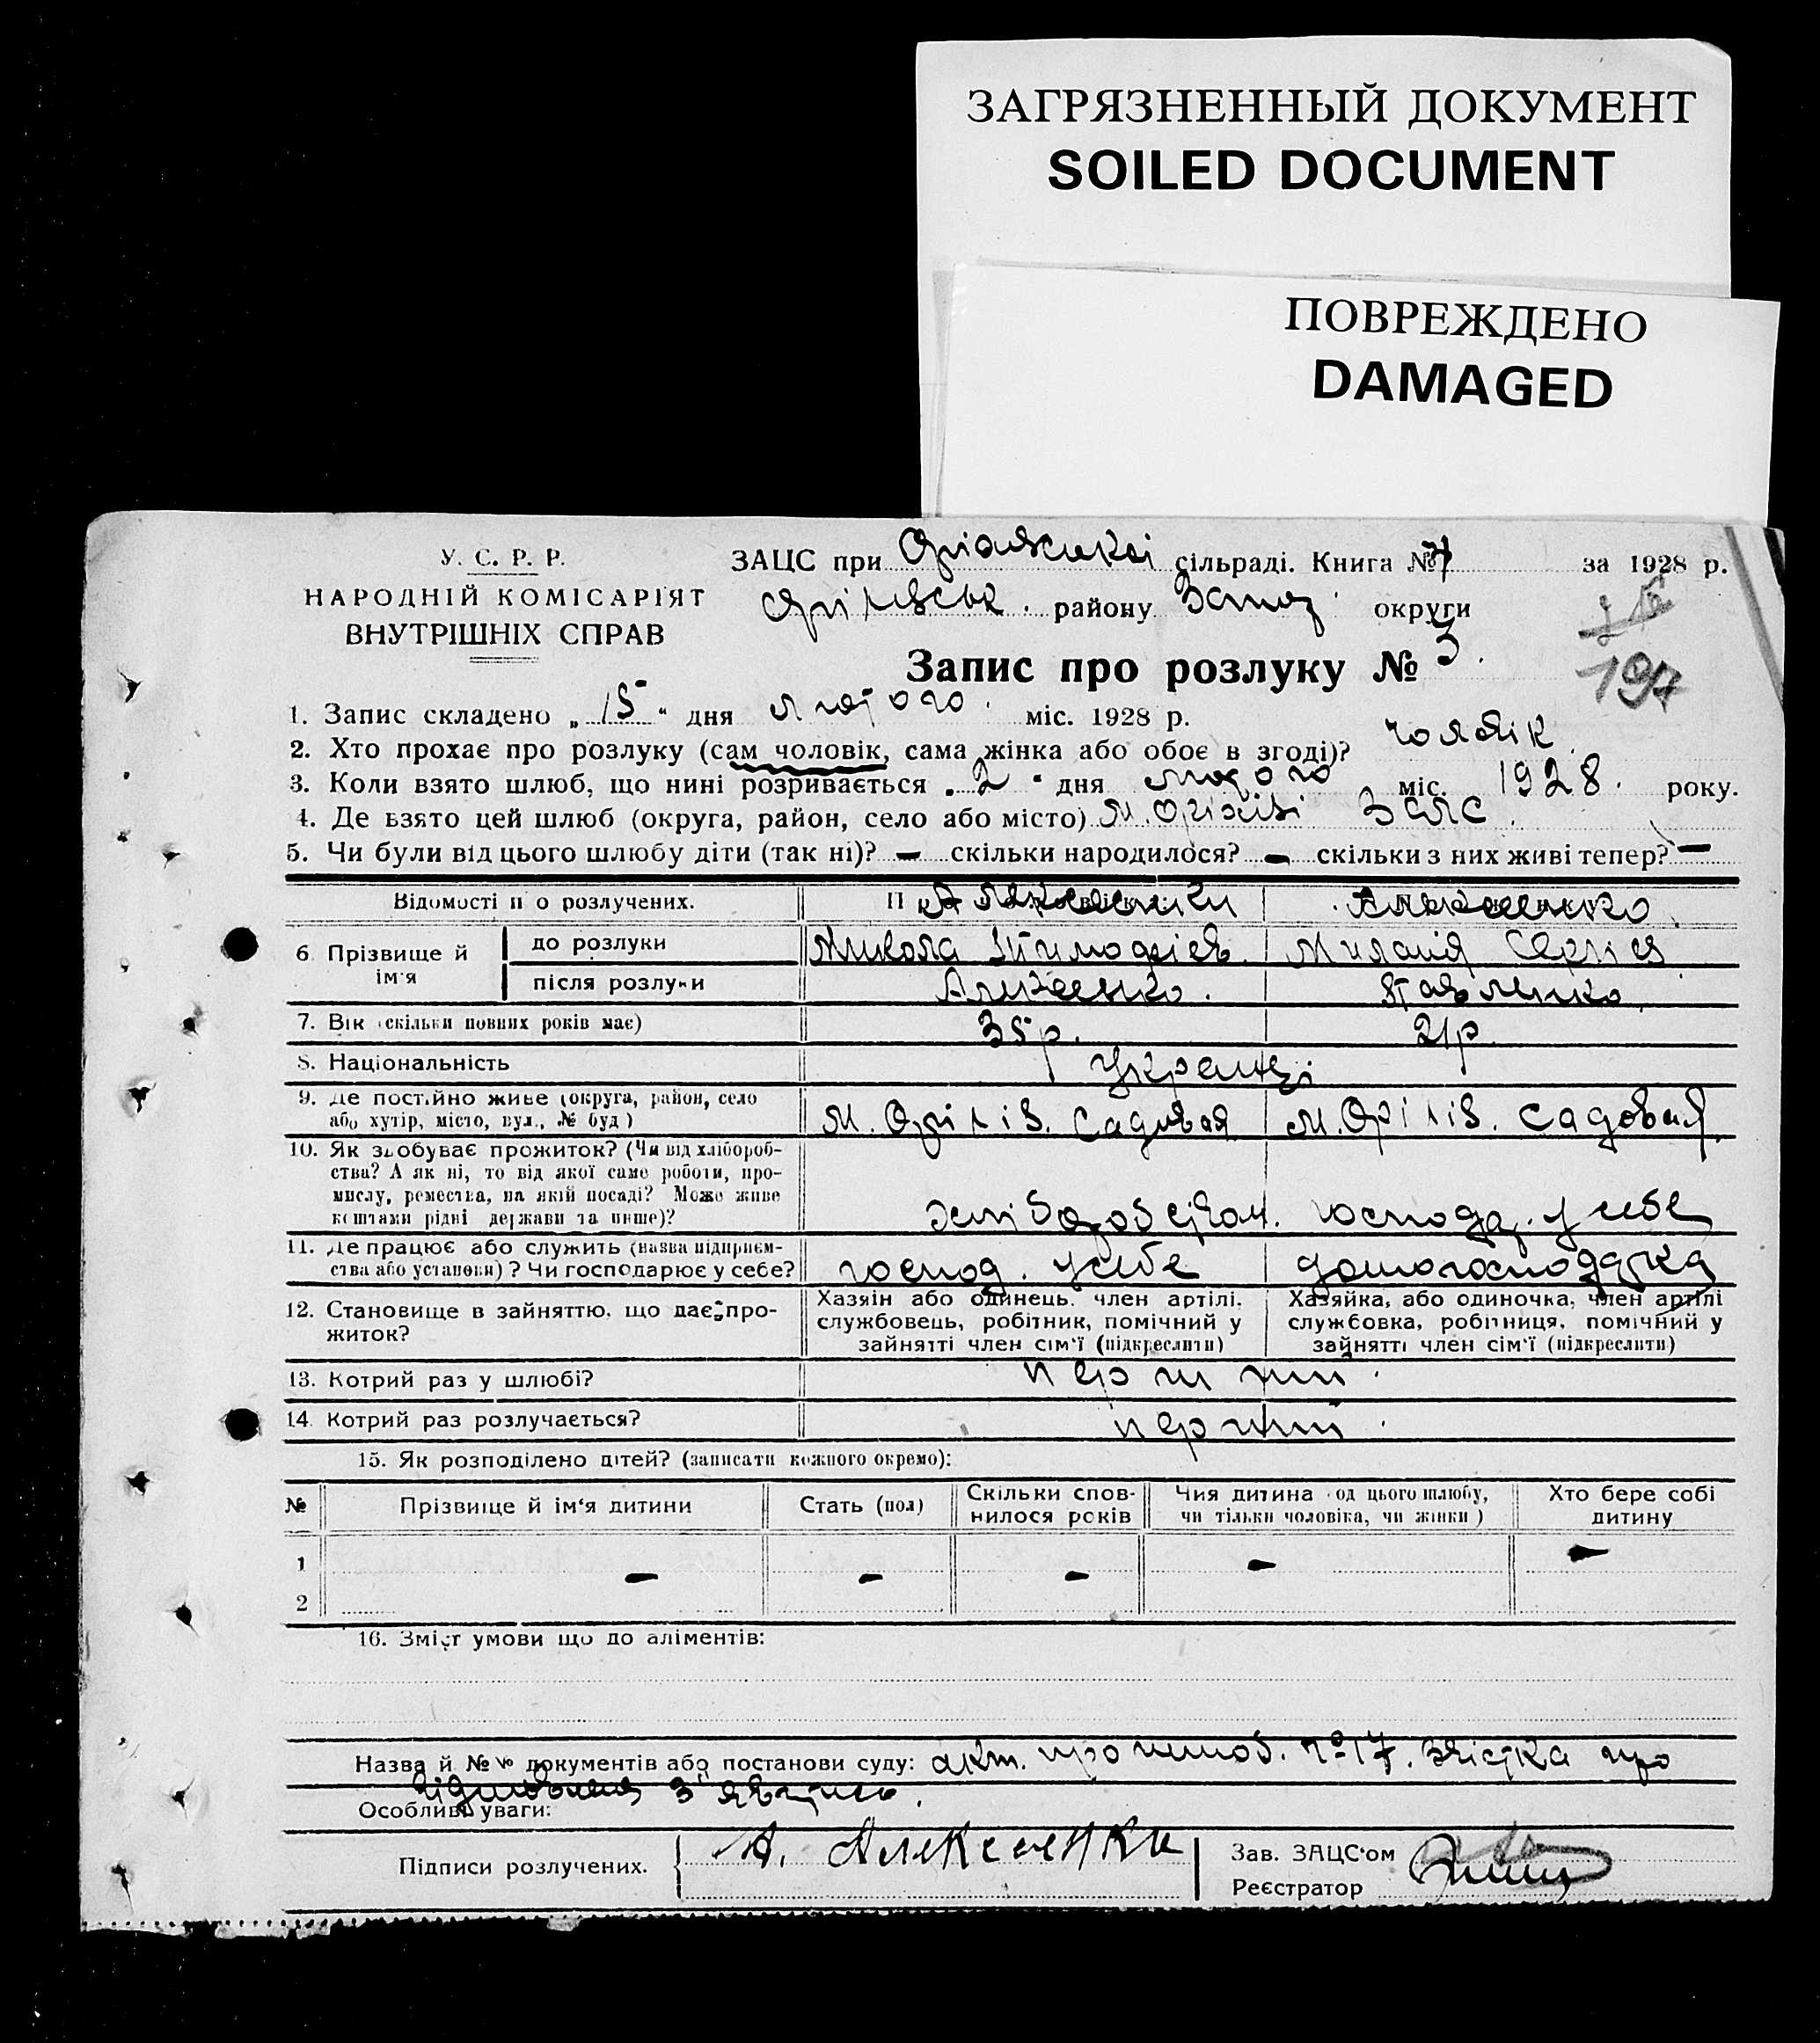 ЗАГРЯЗНЕННЫЙ ДОКУМЕНТ
SOILED DOCUMENT
ПОВРЕЖДЕНО
DAMAGED
У. С. Р. Р.
НАРОДНІЙ КОМІСАРІЯТ
ВНУТРІШНІХ СПРАВ
ЗАЦС при сільраді. Книга № за 1928 р.
району Запоз. округи
197
Запис про розлуку № 3.
1. Запис складено „ 15 “ дня лютого міс. 1928 р.
2. Хто прохає про розлуку (сам чоловік, сама жінка або обоє в згоді)? чоловік
3. Коли взято шлюб, що нині розривається „ 2 “ дня лютого міс. 1928. року.
4. Де взято цей шлюб (округа, район, село або місто) м. Оріхів ЗАГС
5. Чи були від цього шлюбу діти (так ні)? — скільки народилося? — скільки з них живі тепер? —
Відомості про розлучених.
6. Прізвище й ім'я
до розлуки Микола Тимофіев. Сергіев
після розлуки Алексенко. Павленко
7. Вік (скільки повних років має) 35 р. 21 р.
8. Національність Українці
9. Де постійно живе (округа, район, село або хутір, місто, вул., № буд) м. Оріхів. Садовая м. Оріхів. Садовая
10. Як здобуває прожиток? (Чи від хлібороб-
ства? А як ні, то від якої саме роботи, про-
мислу, ремества, на якій посаді? Може живе
коштами рідні держави та инше)? господ. у себе
11. Де працює або служить (назва підприєм-
ства або установи)? Чи господарює у себе? господ. у себе домогосподарка
12. Становище в зайняттю, що дає про-
житок?
Хазяїн або одинець, член артілі,
службовець, робітник, помічний у
зайнятті член сім'ї (підкреслити)
Хазяйка, або одиночка, член артілі
службовка, робітниця, помічний у
зайнятті член сім'ї (підкреслити)
13. Котрий раз у шлюбі? перший
14. Котрий раз розлучається? перший
15. Як розподілено дітей? (записати кожного окремо):
№ Прізвище й ім'я дитини Стать (пол) Скільки спов-
нилося років Чия дитина (од цього шлюбу,
чи тільки чоловіка, чи жінки) Хто бере собі
дитину
1 — —
2 — — —
16. Зміст умови що до аліментів:
Назва й №№ документів або постанови суду: акт. про шлюб. № 17. звістка про
Особливі уваги:
Підписи розлучених. А. Алексенки
Зав. ЗАЦС'ом
Реєстратор